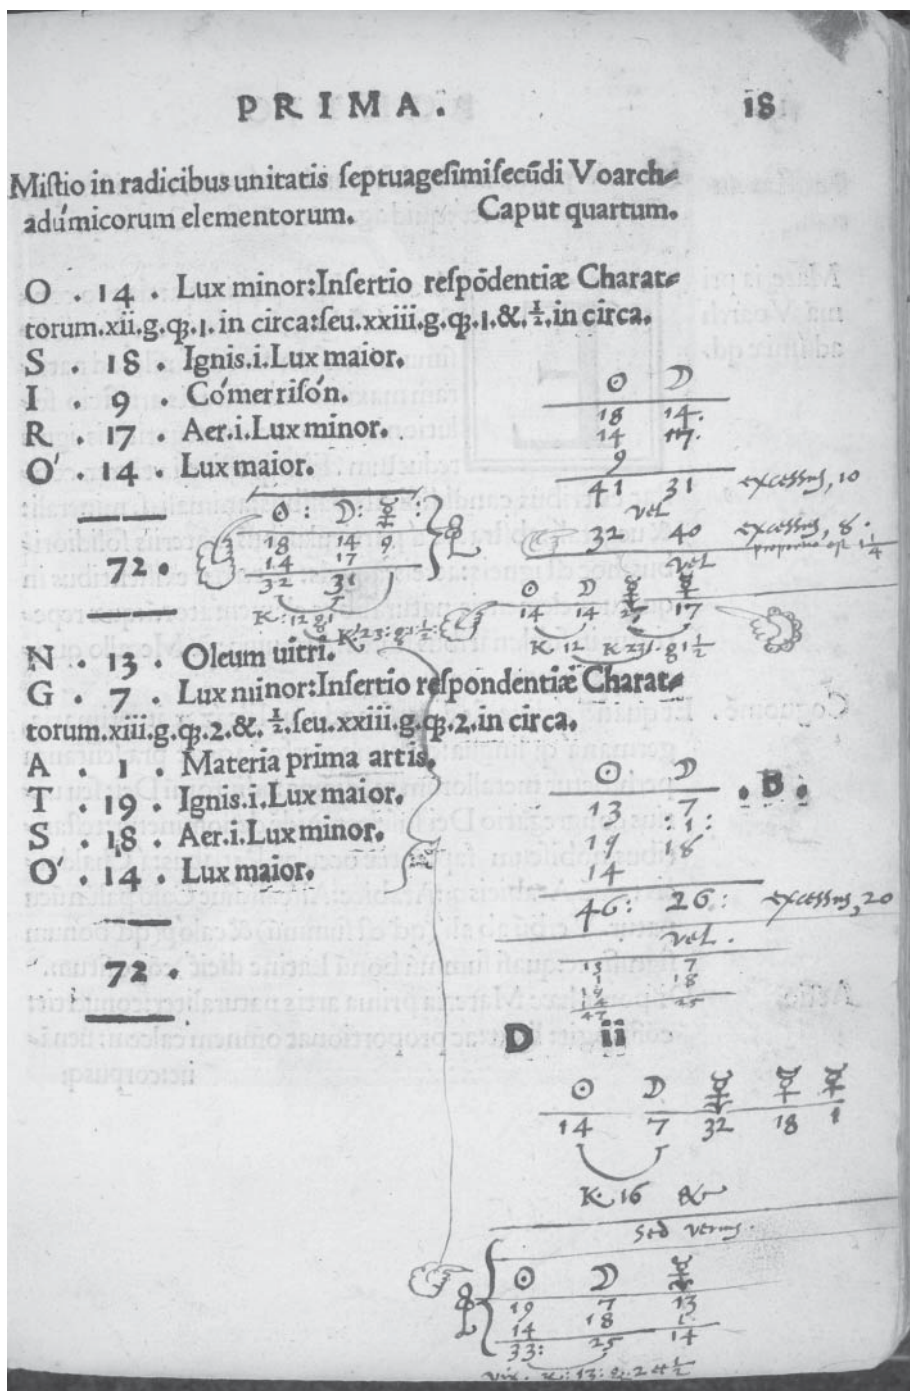 PRIMA. 18
Mistio in radicibus unitatis septuagesimisecūdi Voarch-
adúmicorum elementorum. Caput quartum.
O . 14 . Lux minor:Insertio respōdentiæ Charat-
torum.xii.g.qꝫ.1. in circa:seu.xxiii.g.qꝫ.1.&.½.in circa.
S . 18 . Ignis.i.Lux maior.
I . 9 . Cómerrisón.
R . 17 . Aer.i.Lux minor.
O' . 14 . Lux maior.
72 .
☉ ☽
18 14.
14 17.
9
41 31 excessus, 10
vel
32 40 excessus, 8.
vel
☉ ☽: ☿
18 14 9
14 17
32 31
K: 12 g1
K: 23: g1 ½:
☉ ☽ ☿ ☿
14 14 27 17
K. 12 K 23. g1½
N . 13 . Oleum uitri.
G . 7 . Lux minor:Insertio respondentiæ Charat-
torum.xiii.g.qꝫ.2.&.½.seu.xxiii.g.qꝫ.2.in circa.
A . 1 . Materia prima artis.
T . 19 . Ignis.i.Lux maior.
S . 18 . Aer.i.Lux minor.
O' . 14 . Lux maior.
72 .
☉ ☽ . B .
13 7
19 :1:
14 18
46: 26: excessus, 20
vel.
13 7
1 18
19 25
14
47
D ii
☉ ☽ ☿ ☿ ☿
14 7 32 18 1
K. 16 &
Sed verius.
☉ ☽ ☿
19 7 13
14 18 1
33: 25 14
K: 13: g. 2 et ½